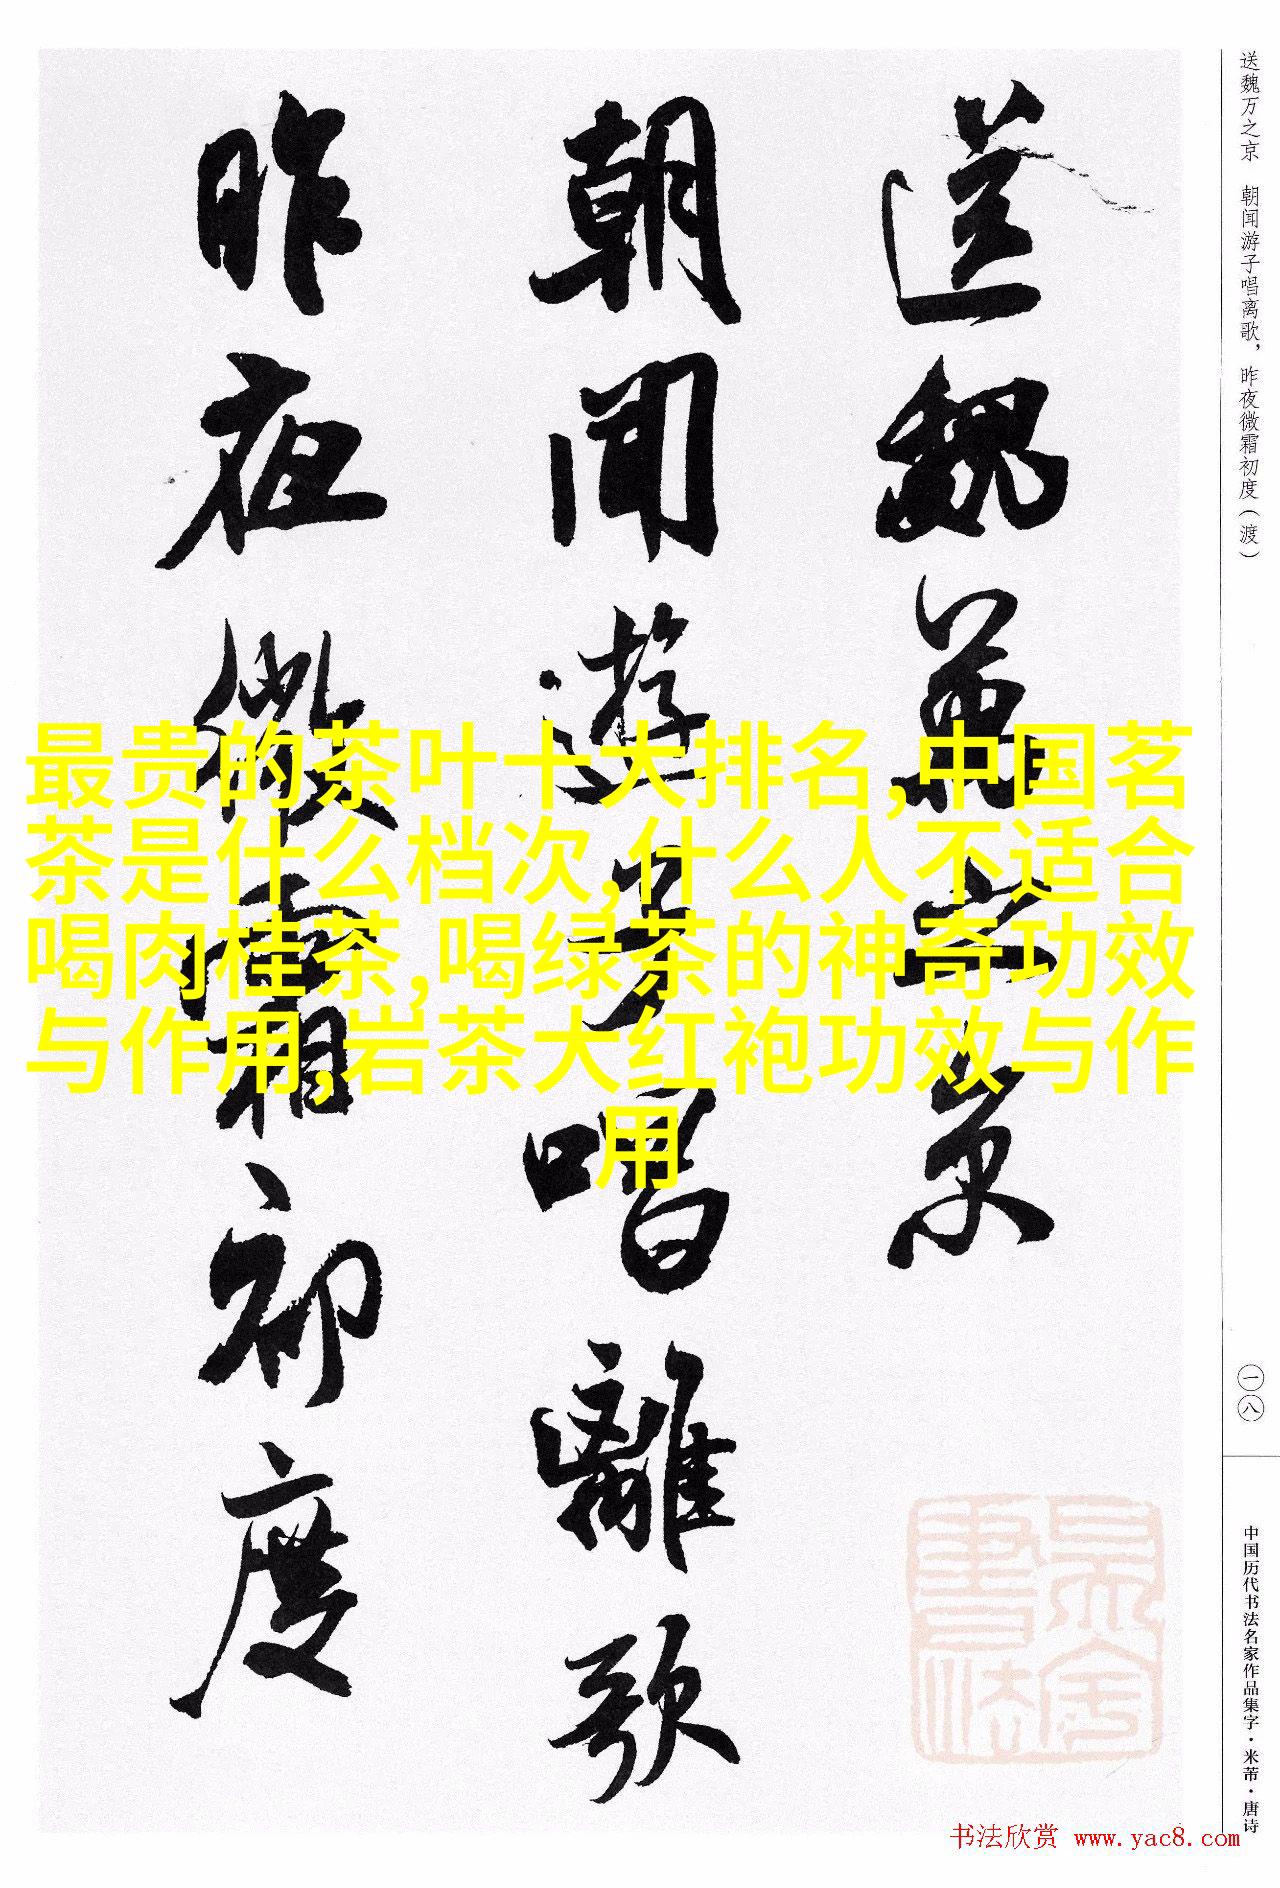 送魏万之京　朝闻游子唱离歌，昨夜微霜初度（渡）
送魏萬之京
朝聞遊子唱離歌
昨夜微霜初度
最贵的茶叶十大排名,中国茗
茶是什么档次,什么人不适合
喝肉桂茶,喝绿茶的神奇功效
与作用,岩茶大红袍功效与作
用
一八
中国历代书法名家作品集字·米芾·唐诗
书法欣赏 www.yac8.com